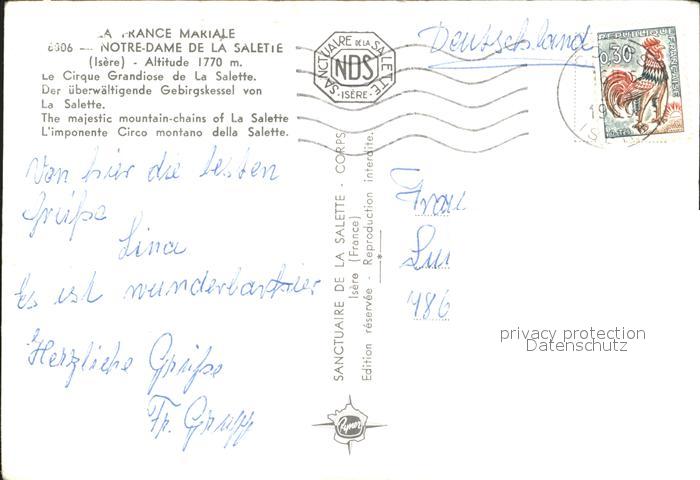 LA FRANCE MARIALE
6306 — NOTRE-DAME DE LA SALETTE
(Isère) - Altitude 1770 m.
Le Cirque Grandiose de La Salette.
Der überwältigende Gebirgskessel von
La Salette.
The majestic mountain-chains of La Salette
L'imponente Circo montano della Salette.
SANCTUAIRE DE LA SALETTE
NDS
- ISÈRE -
Deutschland
0,30
REPUBLIQUE FRANCAISE
POSTES
Von hier die besten
Grüße
Lina
Es ist wunderbar hier
Herzliche Grüße
Fr. Grupp
SANCTUAIRE DE LA SALETTE - CORPS
Isère (France)
Edition réservée - Reproduction interdite.
Frau
privacy protection
Datenschutz